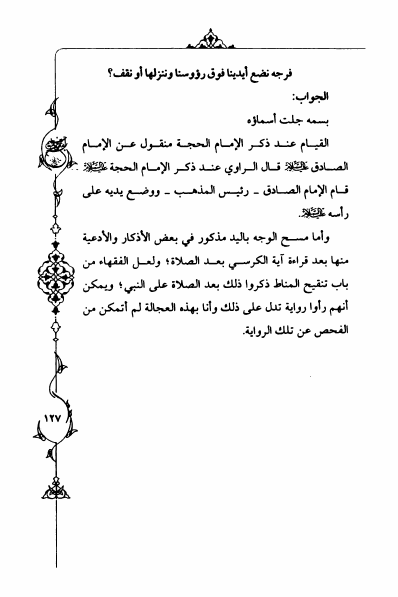 فرجه نضع أيدينا فوق رؤوسنا وننزلها أو نقف؟
الجواب:
بسمه جلت أسماؤه
القيام عند ذكر الإمام الحجة منقول عن الإمام
الصادق عليه السلام قال الراوي عند ذكر الإمام الحجة عليه السلام
قام الإمام الصادق - رئيس المذهب - ووضع يديه على
رأسه عليه السلام.
وأما مسح الوجه باليد مذكور في بعض الأذكار والأدعية
منها بعد قراءة آية الكرسي بعد الصلاة؛ ولعل الفقهاء من
باب تنقيح المناط ذكروا ذلك بعد الصلاة على النبي؛ ويمكن
أنهم رأوا رواية تدل على ذلك وأنا بهذه العجالة لم أتمكن من
الفحص عن تلك الرواية.
١٢٧